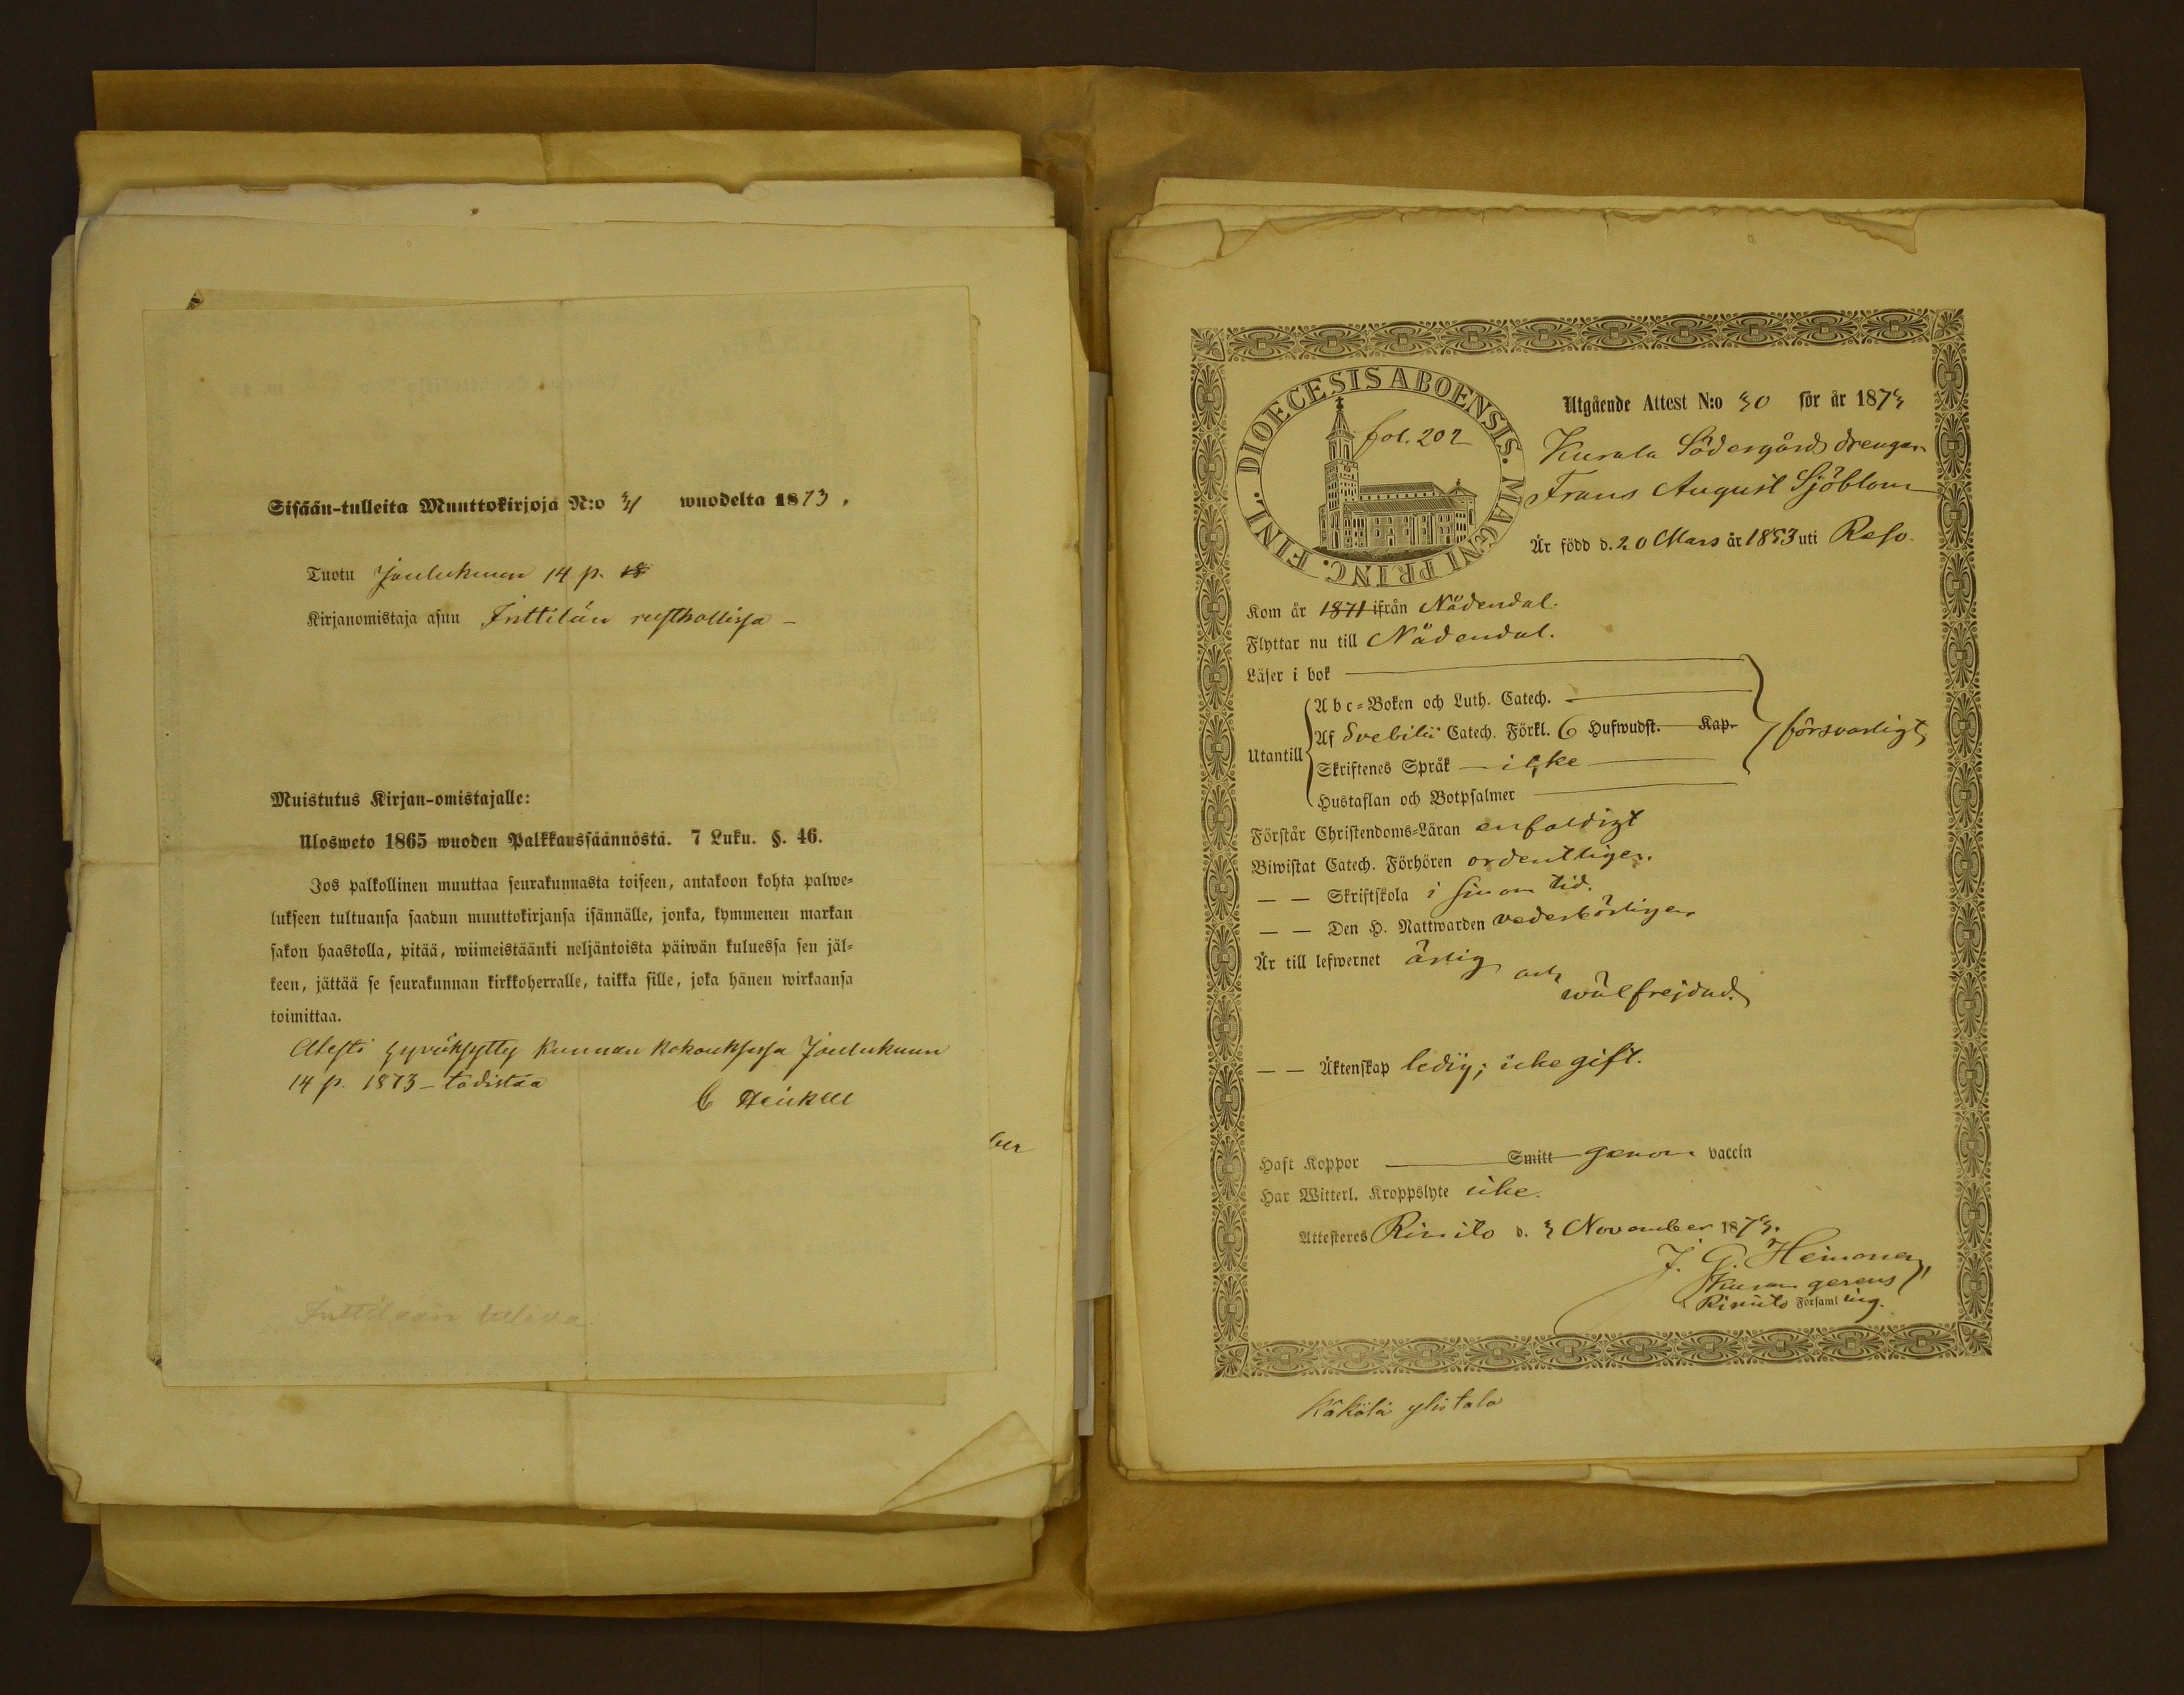 Sisään-tulleita Muuttokirjoja N:o 31 wuodelta 1873.
Tuotu Joulukuun 14 p. 18
Kirjanomistaja asuu Inttilän rusthollissa –
Muistutus Kirjan-omistajalle:
Ulosweto 1865 wuoden Palkkaussäännöstä. 7 Luku. §. 46.
Jos palkollinen muuttaa seurakunnasta toiseen, antakoon kohta palwe=
lukseen tultuansa saadun muuttokirjansa isännälle, jonka, kymmenen markan
sakon haastolla, pitää, wiimeistäänki neljäntoista päiwän kuluessa sen jäl=
keen, jättää se seurakunnan kirkkoherralle, taikka sille, joka hänen wirkaansa
toimittaa.
Atesti hyväksytty kunnan kokouksessa Joulukuun
14 p. 1873 – todistaa
C Heikell
ber
Inttilään tuleva
DIOECESIS ABOENSIS. MAGNI PRINC. FINL.
fol. 202
Utgående Attest N:o 30 för år 1873
Kurala Södergårds drengen
Frans August Sjöblom
Är född d. 20 Mars år 1853 uti Reso.
Kom år 1871 ifrån Nådendal.
Flyttar nu till Nådendal.
Läser i bok
Utantill
Abc=Boken och Luth. Catech.
Af Svebilii Catech. Förkl. 6 Hufwudst. Kap.
Skriftenes Språk – icke
Hustaflan och Botpsalmer
försvarligt
Förstår Christendoms=Läran enfaldigt
Biwistat Catech. Förhören ordentligen.
— — Skriftskola i sin om tid.
— — Den H. Nattwarden vederbörligen
Är till lefwernet ärlig och
wälfrejdad.
— — Äktenskap ledig; icke gift.
Haft Koppor Smitt genom vaccin
Har Witterl. Kroppslyte icke.
Attesteres Rimito d. 3 November 1873.
J. G. Heimonen,
gerens
Rimito Församling.
Käkölä ylistalo